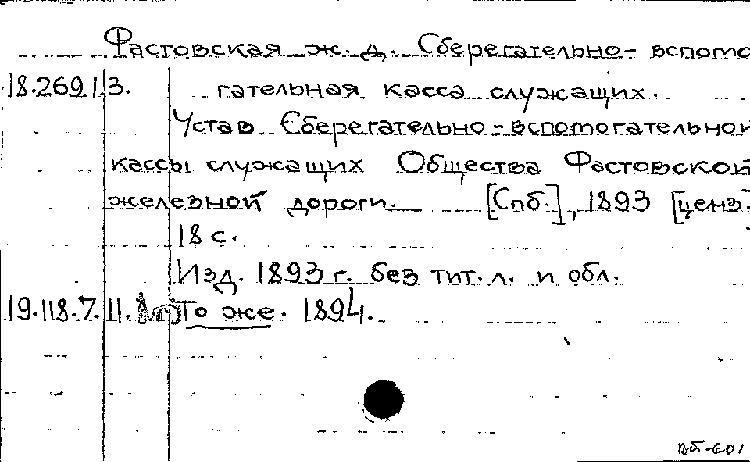 Фастовская ж. д. Сберегательно-вспомо
18.269.1.3. гательная касса служащих.
Устав Сберегательно-вспомогательной
кассы служащих Общества Фастовской
железной дороги. [Спб.], 1893 [ценз.
18 с.
Изд. 1893 г. без тит. л. и обл.
19.118.7.11. То же. 1894.